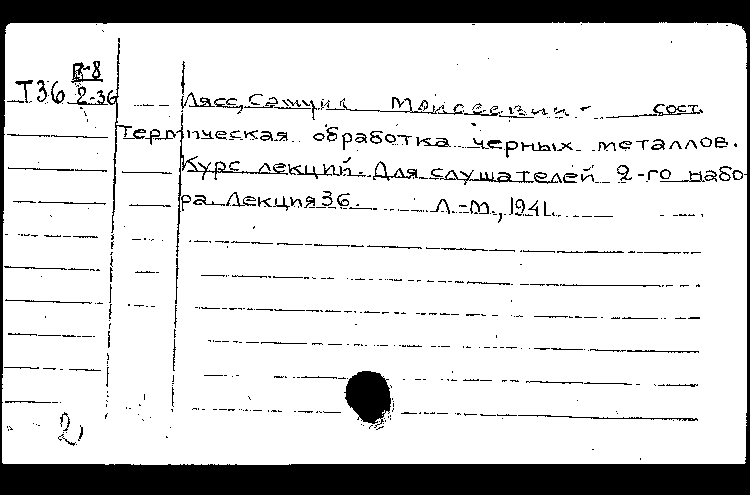 В-8
Т36 2-36
Лясс, Самуил Моисеевич - сост.
Термическая обработка черных металлов.
Курс лекций. Для слушателей 2-го набо-
ра. Лекция 36. Л.-М., 1941.
2